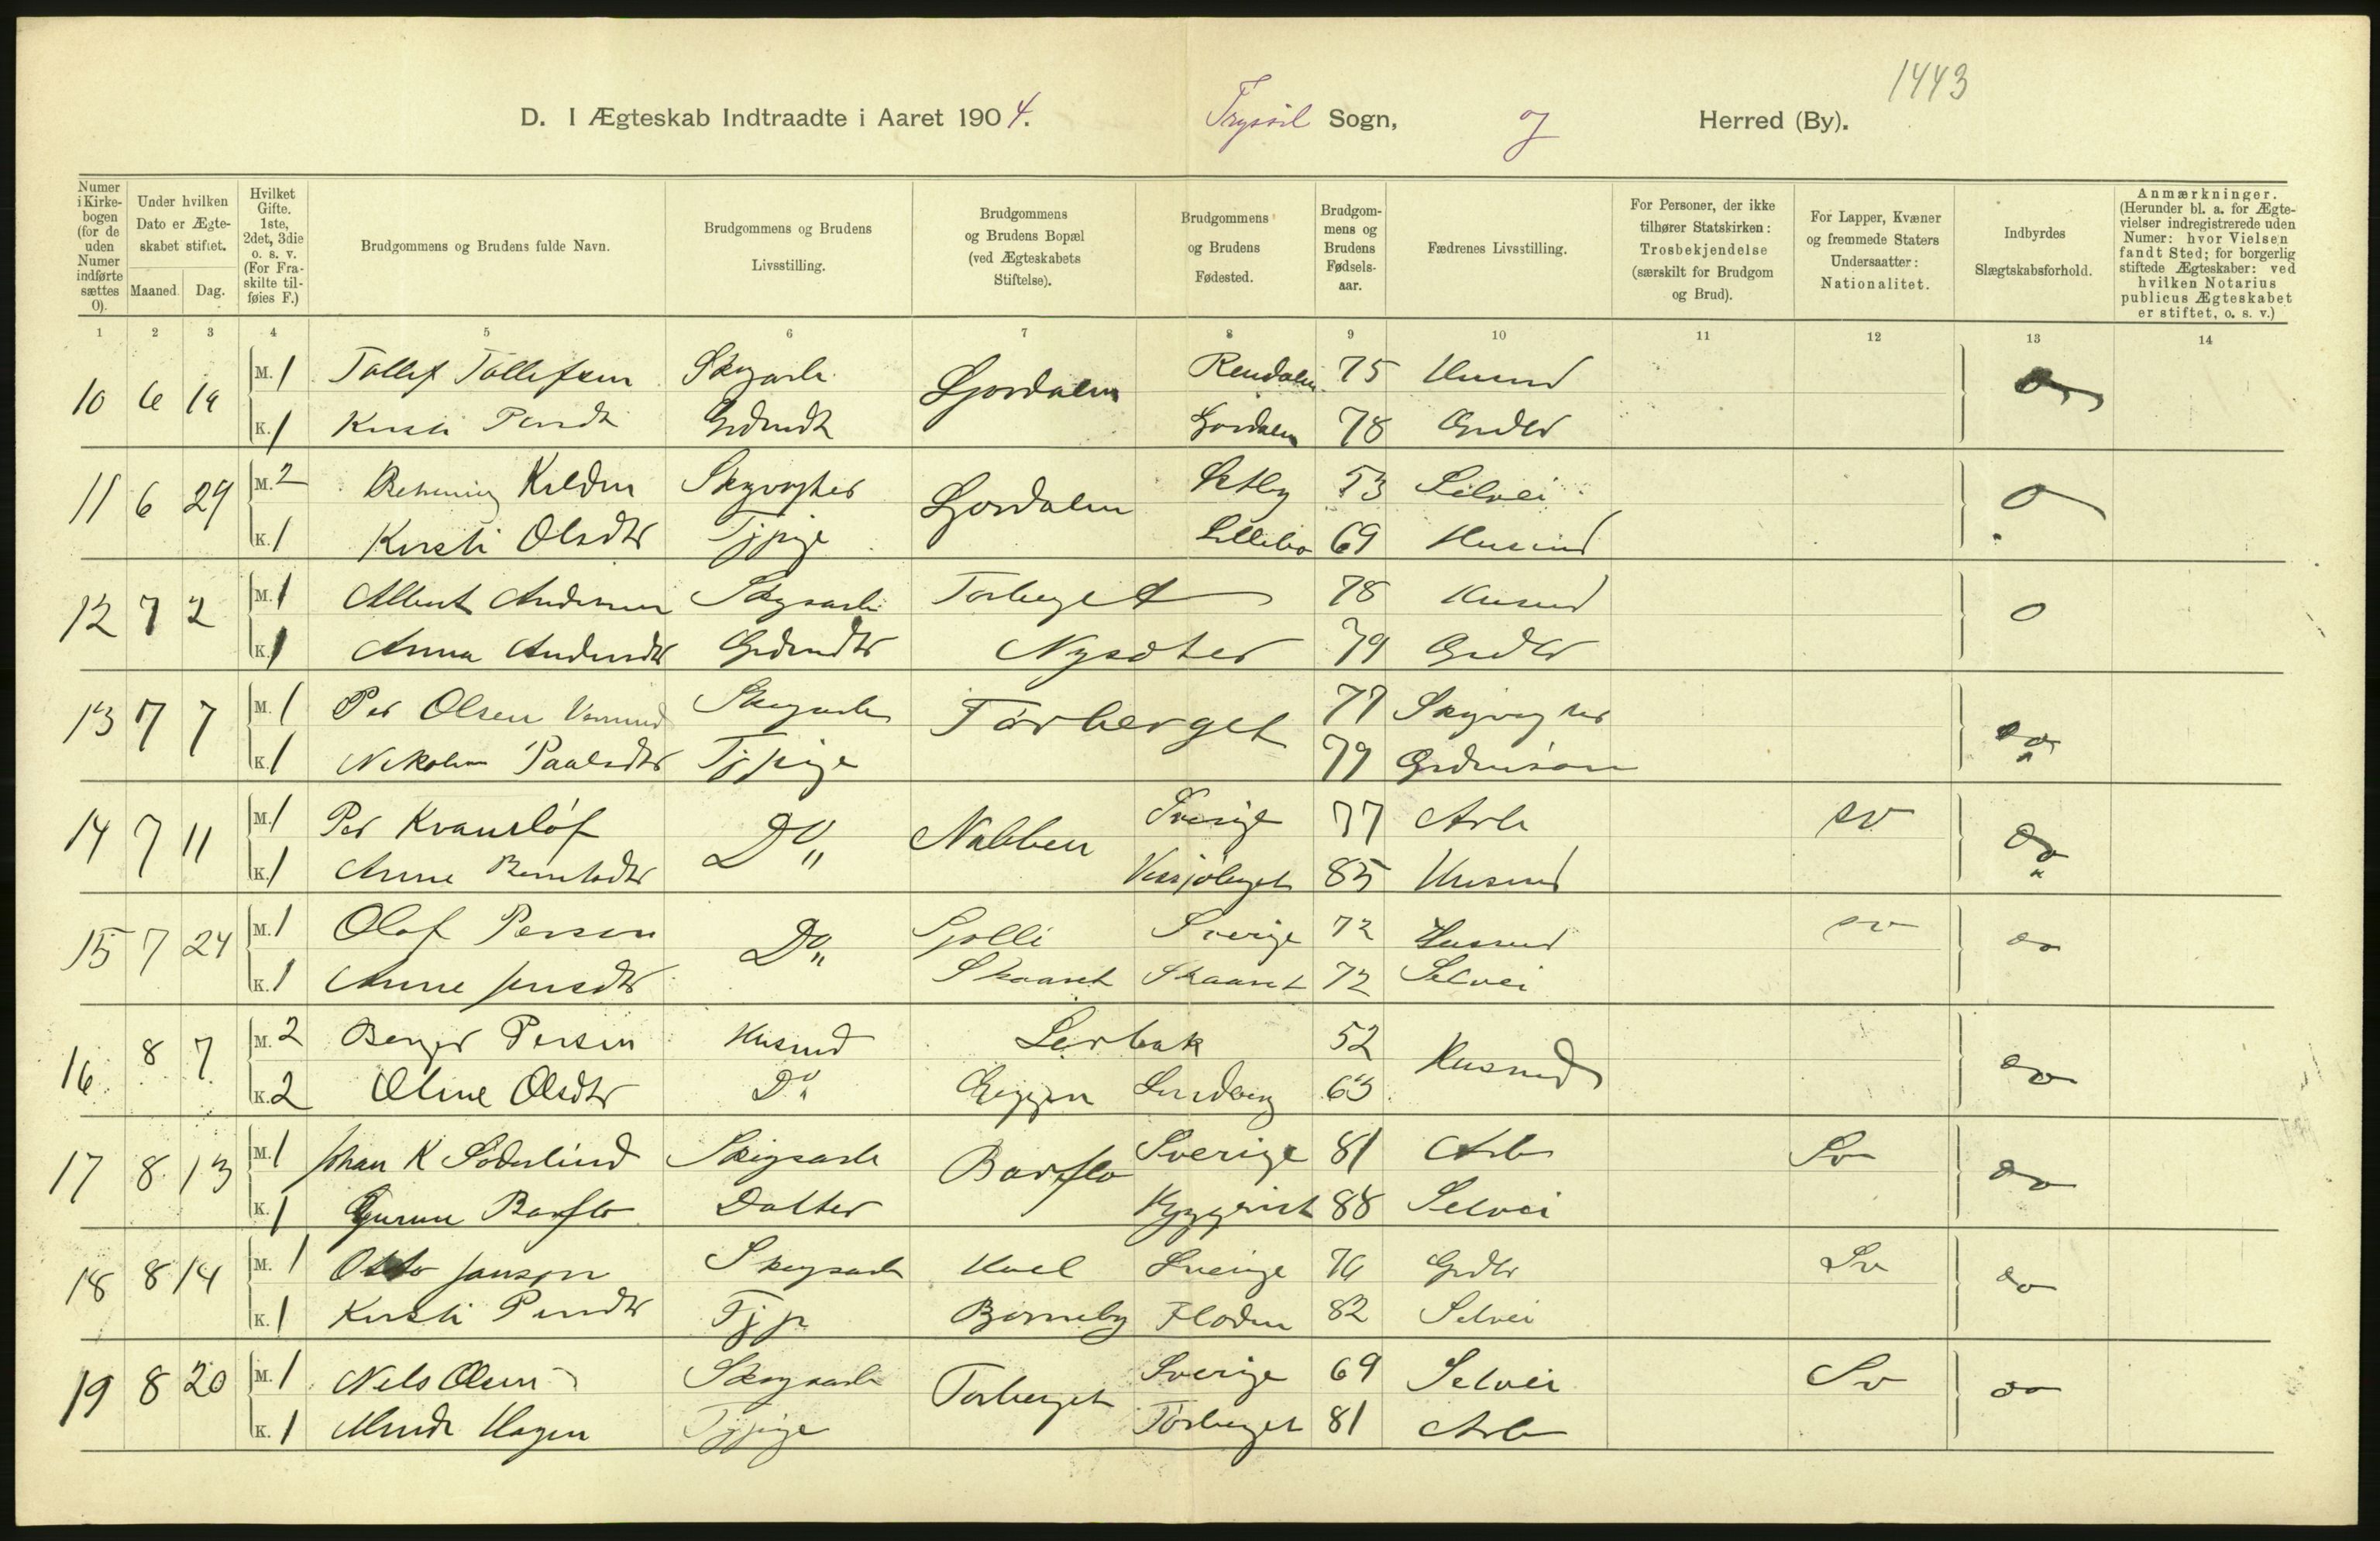 1443
D. I Ægteskab Indtraadte i Aaret 1904. Trysil Sogn, og Herred (By).
Numer i Kirkebogen (for de uden Numer indførte sættes 0).
Under hvilken Dato er Ægteskabet stiftet.
Maaned. Dag.
Hvilket Gifte. 1ste, 2det, 3die o. s. v. (For Fraskilte tilføies F.)
Brudgommens og Brudens fulde Navn.
Brudgommens og Brudens Livsstilling.
Brudgommens og Brudens Bopæl (ved Ægteskabets Stiftelse).
Brudgommens og Brudens Fødested.
Brudgommens og Brudens Fødselsaar.
Fædrenes Livsstilling.
For Personer, der ikke tilhører Statskirken: Trosbekjendelse (særskilt for Brudgom og Brud).
For Lapper, Kvæner og fremmede Staters Undersaatter: Nationalitet.
Indbyrdes Slægtskabsforhold.
Anmærkninger. (Herunder bl. a. for Ægtevielser indregistrerede uden Numer: hvor Vielsen fandt Sted; for borgerlig stiftede Ægteskaber: ved hvilken Notarius publicus Ægteskabet er stiftet, o. s. v.)
1 2 3 4 5 6 7 8 9 10 11 12 13 14
10 6 19 M. 1 Tollef Tollefsen Skogarb Ljordalen Rendalen 75 Husmd
K. 1 Kirsti Persdt Grdmdt Ljordalen 78 Grdbr
11 6 29 M. 2 Kilden Skogvogter Ljordalen 53 Selvei 0
K. 1 Kirsti Olsdtr Tjpige Lillebo 69 Husmd
12 7 2 M. 1 Albert Andersen Skogarb Torberget 78 Husmd 0
K. 1 Anna Andersdtr Grdmdtr Nysæter 79 Grdbr
13 7 7 M. 1 Per Olsen Skogarb Törberget 77 Skogvogter
K. 1 Nikoline Paalsdtr Tjpige 79 Grdmand
14 7 11 M. 1 Per Do Nabben Sverige 77 Arb sv do
K. 1 Anne Berntsdtr 85 Husmd
15 7 24 M. 1 Olof Person Do Sverige 72 Husmd sv do
K. 1 Anne Jensdtr Skaaret Skaaret 72 Selvei
16 8 7 M. 2 Berger Persen Husmd Lerbak 52 Husmd do
K. 2 Oline Olsdtr Do Eggen Lindberg 63
17 8 13 M. 1 Johan K Söderlind Skogsarb Barflo Sverige 81 Arb Sv do
K. 1 Gurine Barflo Datter 88 Selvei
18 8 14 M. 1 Otto Janson Skogsarb Sverige 76 Grdbr Sv do
K. 1 Kirsti Persdtr Tjp Borneby Floden 82 Selvei
19 8 20 M. 1 Nils Olsen Skogsarb Torberget Sverige 69 Selvei Sv do
K. 1 Hagen Tjpige Törberget 81 Arb